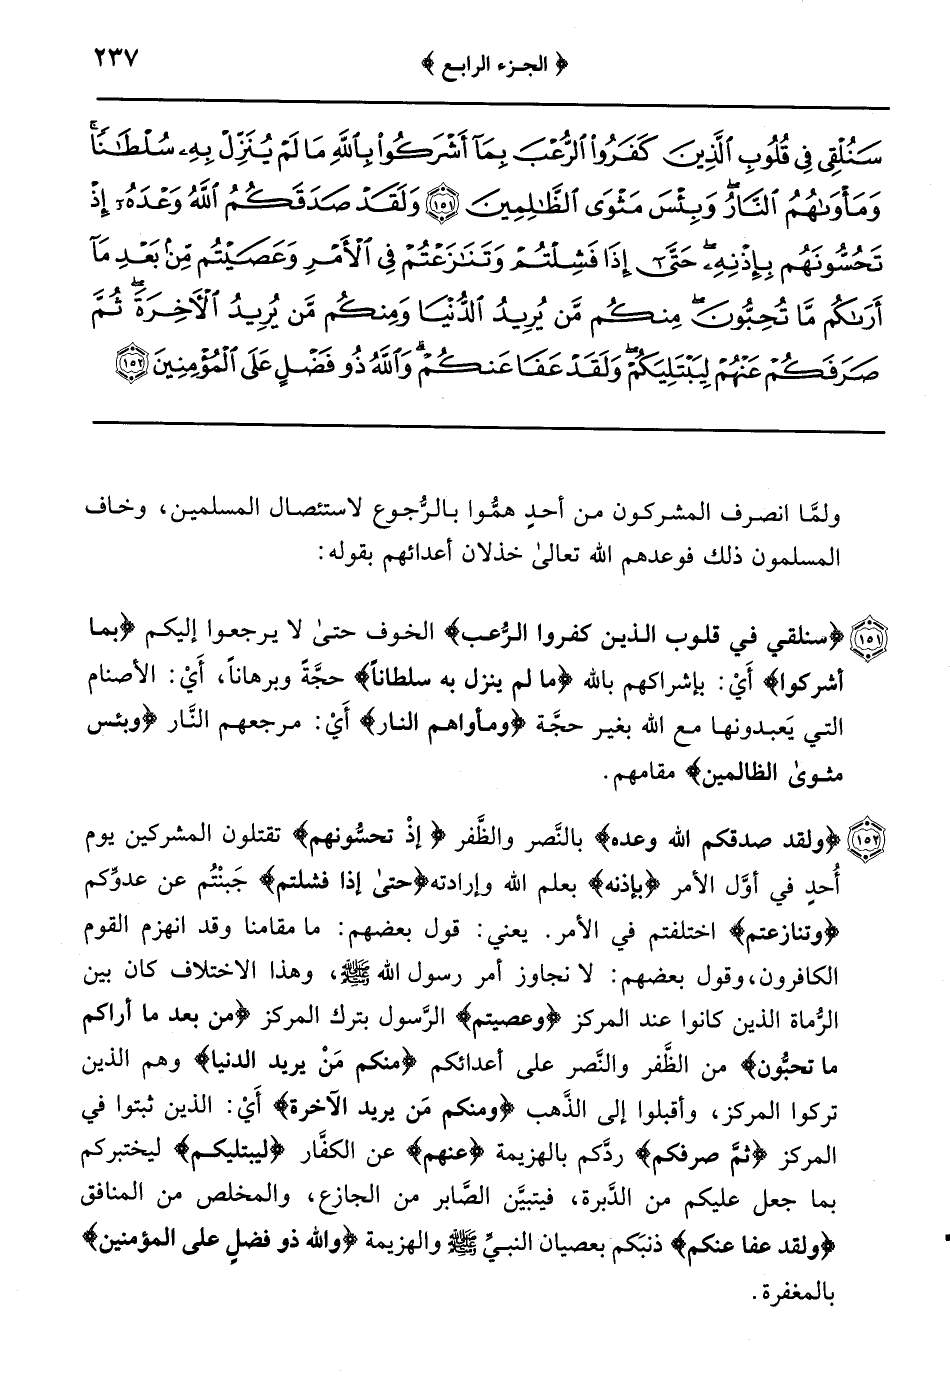 ﴿ الجزء الرابع ﴾ ٢٣٧
سَنُلْقِى فِى قُلُوبِ ٱلَّذِينَ كَفَرُوا۟ ٱلرُّعْبَ بِمَآ أَشْرَكُوا۟ بِٱللَّهِ مَا لَمْ يُنَزِّلْ بِهِۦ سُلْطَـٰنًا ۖ
وَمَأْوَىٰهُمُ ٱلنَّارُ ۖ وَبِئْسَ مَثْوَى ٱلظَّـٰلِمِينَ ١٥١ وَلَقَدْ صَدَقَكُمُ ٱللَّهُ وَعْدَهُۥٓ إِذْ
تَحُسُّونَهُم بِإِذْنِهِۦ ۖ حَتَّىٰٓ إِذَا فَشِلْتُمْ وَتَنَـٰزَعْتُمْ فِى ٱلْأَمْرِ وَعَصَيْتُم مِّنۢ بَعْدِ مَآ
أَرَىٰكُم مَّا تُحِبُّونَ ۚ مِنكُم مَّن يُرِيدُ ٱلدُّنْيَا وَمِنكُم مَّن يُرِيدُ ٱلْـَٔاخِرَةَ ۚ ثُمَّ
صَرَفَكُمْ عَنْهُمْ لِيَبْتَلِيَكُمْ ۖ وَلَقَدْ عَفَا عَنكُمْ ۗ وَٱللَّهُ ذُو فَضْلٍ عَلَى ٱلْمُؤْمِنِينَ ١٥٢
ولمَّا انصرف المشركون من أحدٍ همُّوا بالرُّجوع لاستئصال المسلمين، وخاف
المسلمون ذلك فوعدهم الله تعالىٰ خذلان أعدائهم بقوله:
١٥١ ﴿سنلقي في قلوب الذين كفروا الرُّعب﴾ الخوف حتىٰ لا يرجعوا إليكم ﴿بما
أشركوا﴾ أَيْ: بإشراكهم بالله ﴿ما لم ينزل به سلطاناً﴾ حجَّةً وبرهاناً، أَيْ: الأصنام
التي يَعبدونها مع الله بغير حجَّة ﴿ومأواهم النار﴾ أَيْ: مرجعهم النَّار ﴿وبئس
مثوىٰ الظالمين﴾ مقامهم.
١٥٢ ﴿ولقد صدقكم الله وعده﴾ بالنَّصر والظَّفر ﴿إذْ تحسُّونهم﴾ تقتلون المشركين يوم
أُحدٍ في أوَّل الأمر ﴿بإذنه﴾ بعلم الله وإرادته ﴿حتىٰ إذا فشلتم﴾ جَبنْتُم عن عدوِّكم
﴿وتنازعتم﴾ اختلفتم في الأمر. يعني: قول بعضهم: ما مقامنا وقد انهزم القوم
الكافرون، وقول بعضهم: لا نجاوز أمر رسول الله ﷺ، وهذا الاختلاف كان بين
الرُّماة الذين كانوا عند المركز ﴿وعصيتم﴾ الرَّسول بترك المركز ﴿من بعد ما أراكم
ما تحبُّون﴾ من الظَّفر والنَّصر على أعدائكم ﴿منكم مَنْ يريد الدنيا﴾ وهم الذين
تركوا المركز، وأقبلوا إلى الذَّهب ﴿ومنكم مَن يريد الآخرة﴾ أَيْ: الذين ثبتوا في
المركز ﴿ثمَّ صرفكم﴾ ردَّكم بالهزيمة ﴿عنهم﴾ عن الكفَّار ﴿ليبتليكم﴾ ليختبركم
بما جعل عليكم من الدَّبرة، فيتبيَّن الصَّابر من الجازع، والمخلص من المنافق
﴿ولقد عفا عنكم﴾ ذنبَكم بعصيان النبيِّ ﷺ والهزيمة ﴿والله ذو فضلٍ على المؤمنين﴾
بالمغفرة.